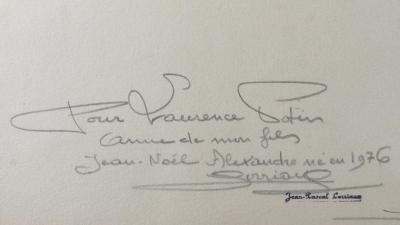 Pour Laurence Potin
amie de mon fils
Jean-Noël Alexandre né en 1976
Lorrain
Jean-Pascal Lorriaux